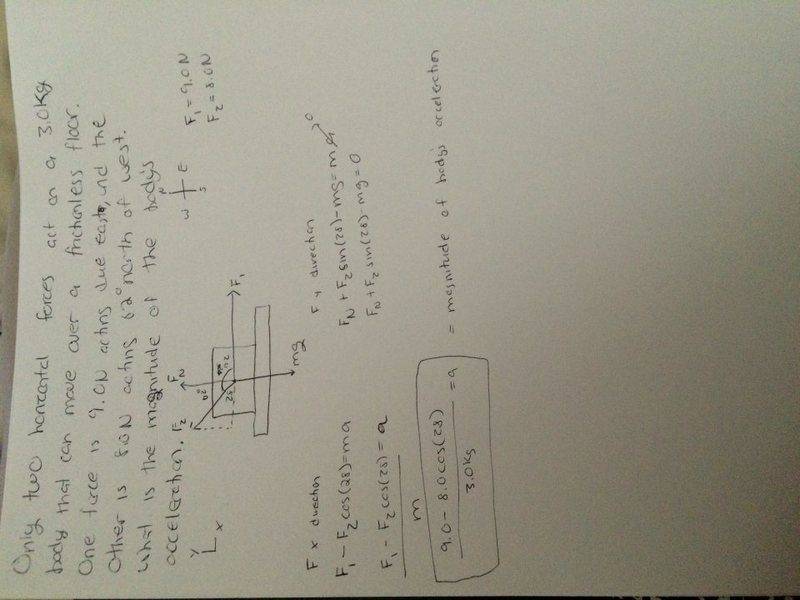 Only two horizontal forces act on a 3.0kg
body that can move over a frictionless floor.
One force is 9.0N acting due east, and the
other is 8.0N acting 62° north of west.
What is the magnitude of the body's
acceleration.
N
W E
S
F1 = 9.0N
F2 = 8.0N
Y
X
F2
FN
62°
28
F1
mg
F x direction
F1 - F2 cos(28) = ma
F1 - F2 cos(28) = a
m
9.0 - 8.0 cos(28) = a
3.0kg
= magnitude of body's acceleration
F y direction
FN + F2 sin(28) - mg = ma 0
FN + F2 sin(28) - mg = 0